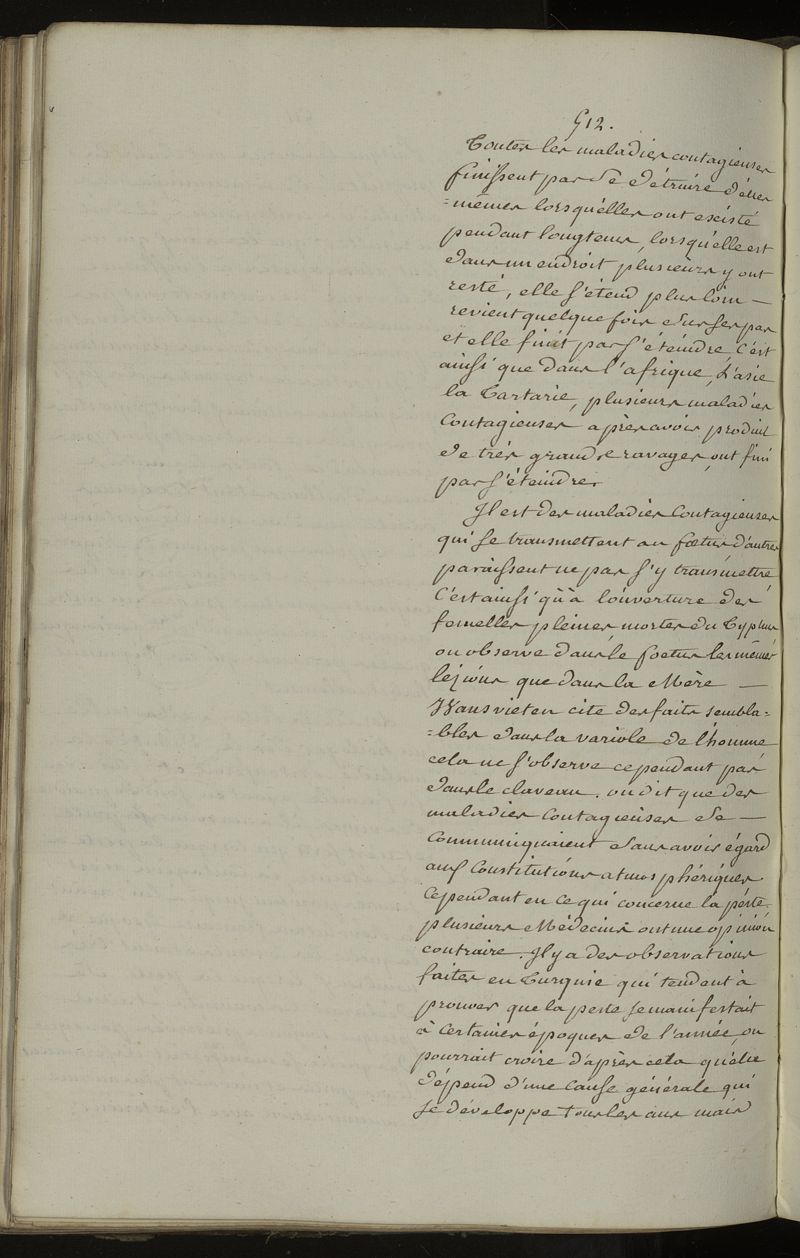 512.
Toutes les maladies contagieuses
finissent par se détruire d'elles
=mêmes lorsqu'elles ont existé
pendant longtems, lorsqu'elle est
dans un endroit plusieurs y ont
resté, elle s'étend plus loin —
revient quelque fois sur ses pas
et elle finit par s'éteindre, c'est
ainsi que dans l'afrique, L'asie
la Tartarie, plusieurs maladies
Contagieuses après avoir produit
de très grands ravages, ont fini
par s'éteindre.
Il est des maladies Contagieuses
qui se transmettent au fœtus d'autres
paraissent ne pas s'y transmettre
C'est ainsi qu'à l'ouverture des
femelles pleines mortes du Typhus
on observe dans le foetus les mêmes
lézions que dans la Mère —
Wansvieten cite des faits sembla=
=bles dans la variole de l'homme
cela ne s'observe cependant pas
dans le claveau. on dit que des
maladies Contagieuses se —
Communiquaient sans avoir égard
aux Constitutions atmosphériques.
Cependant en ce qui concerne la péste
plusieurs Médecins ont une opinion
contraire. Il y a des observations
faites en Turquie qui tendent à
prouver que la peste se manifestait
à certaines époques de l'année, on
pourrait croire d'après cela qu'elle
dépend d'une cause générale qui
se développe tous les ans mais